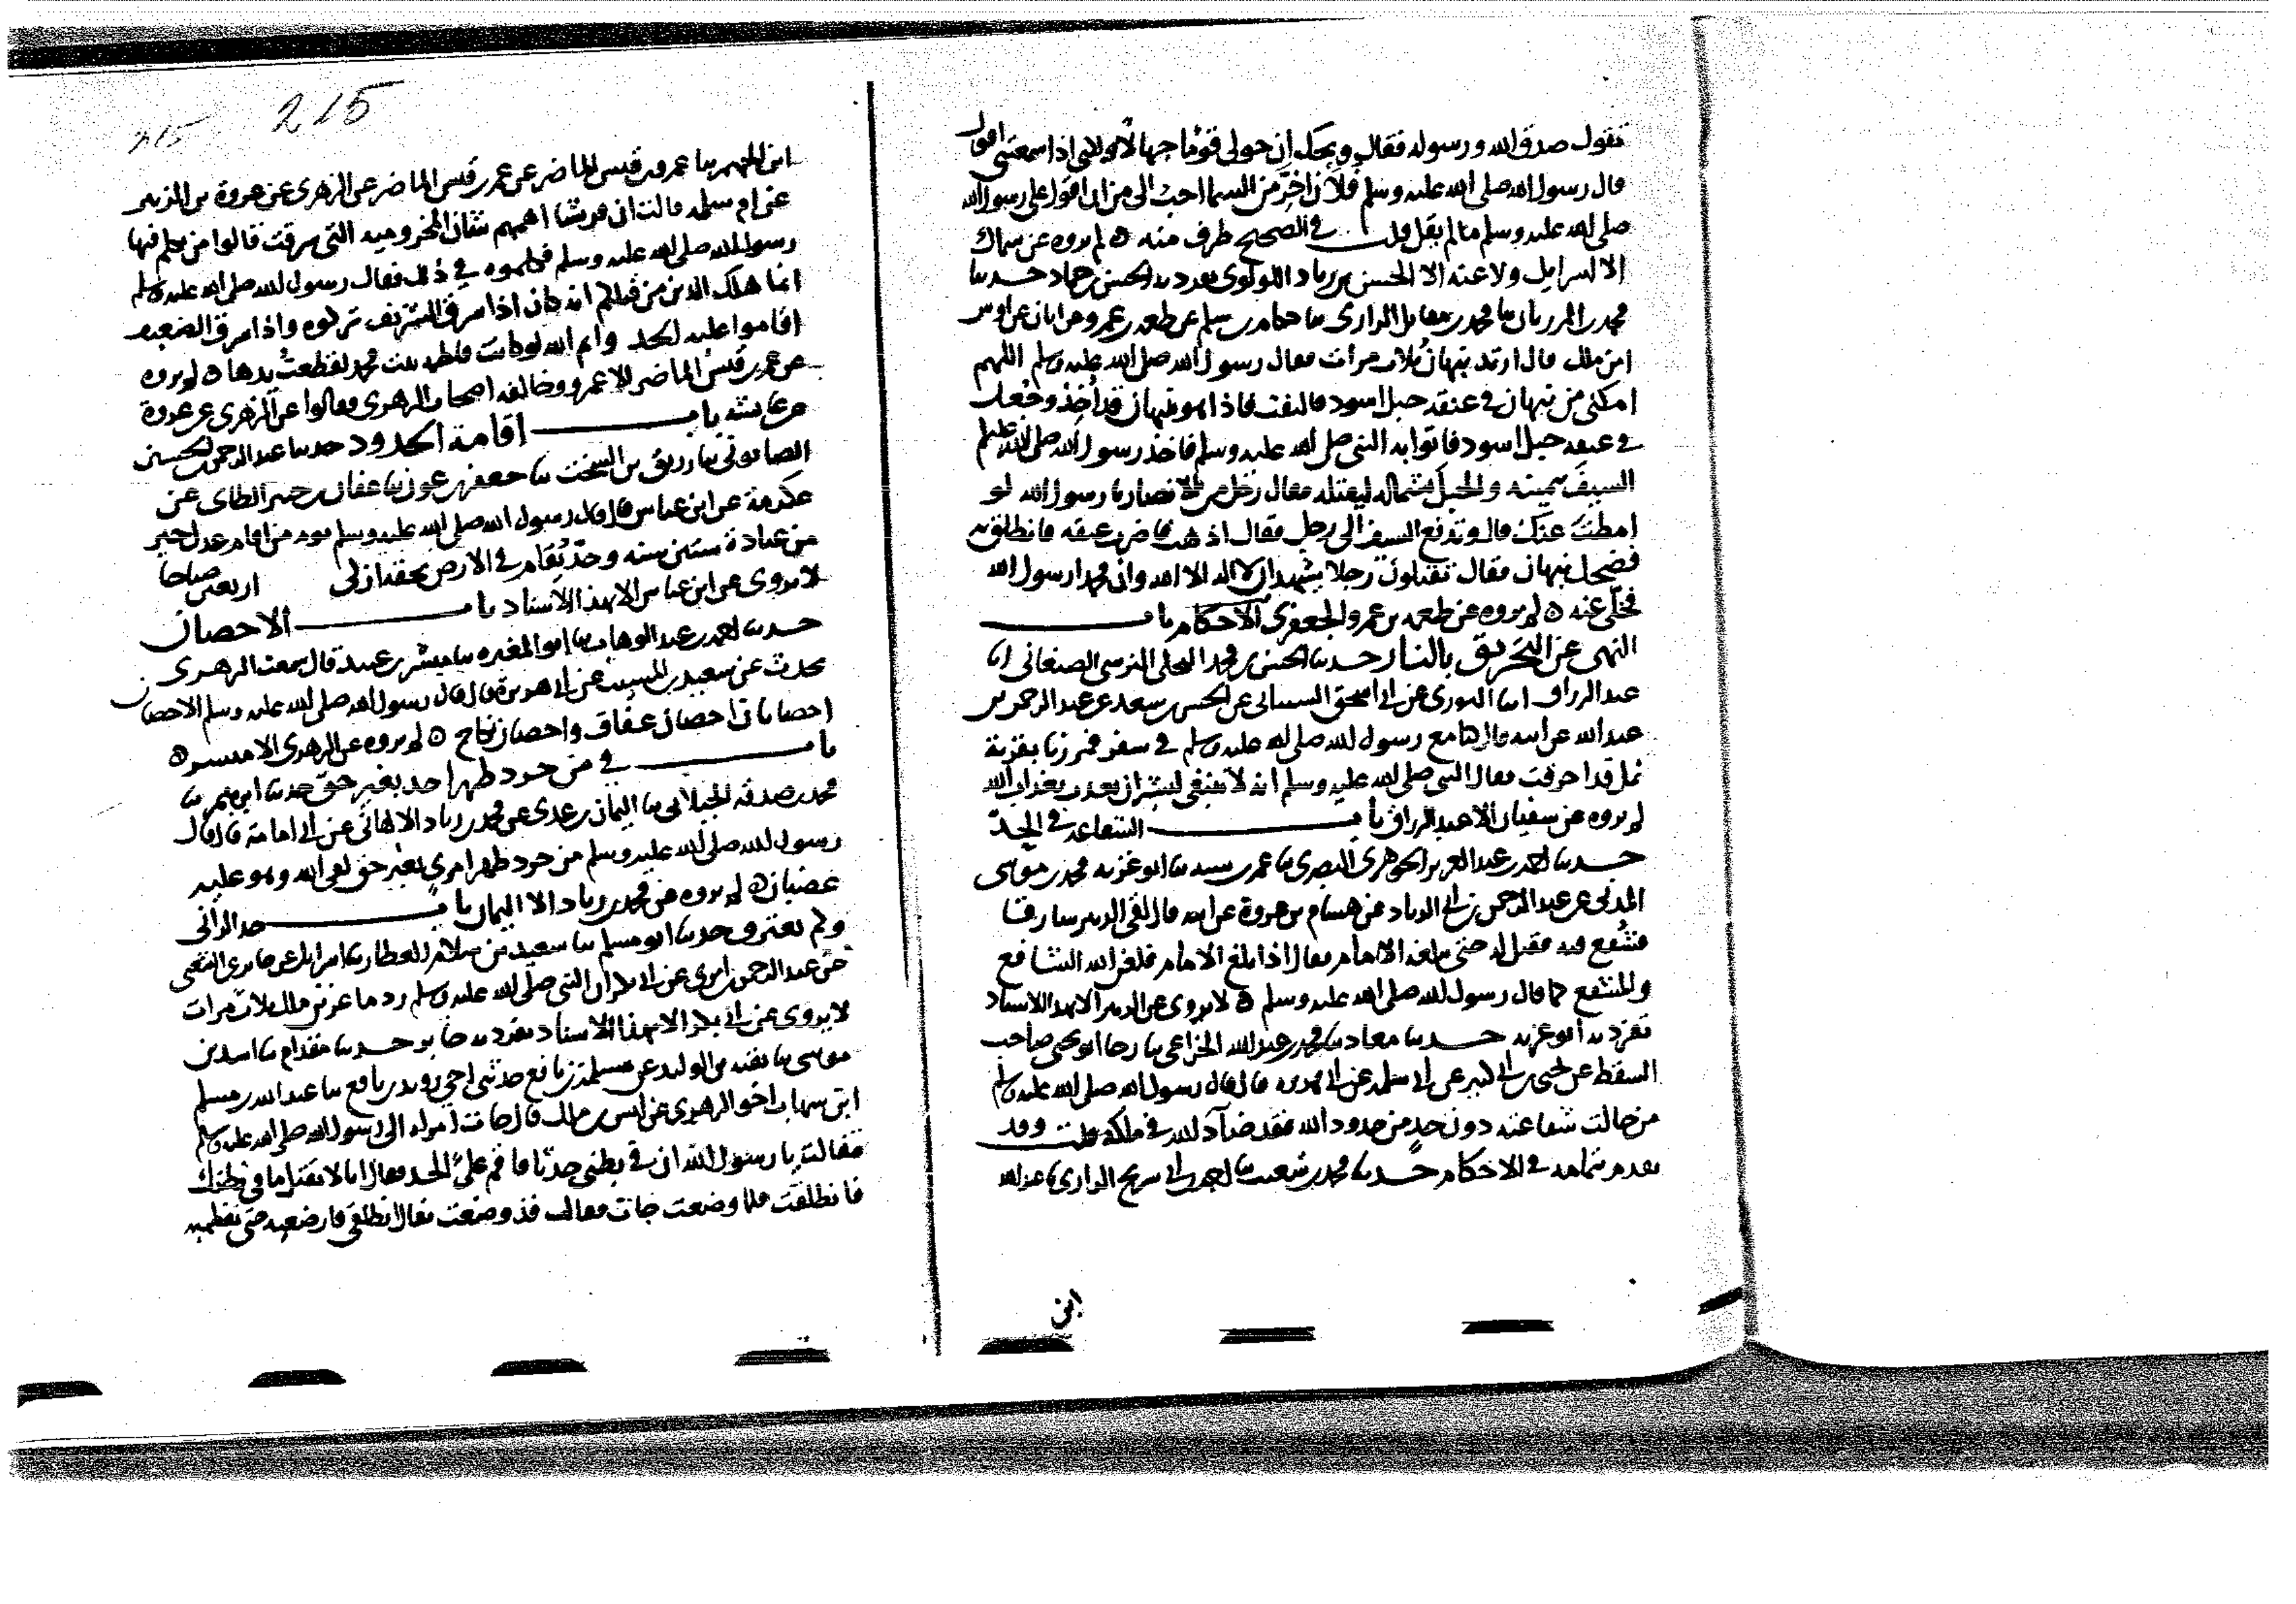 تقول صدق الله ورسوله فقال ويحك ان حولي قوما جهالا ولكني اذا سمعتني اقول
قال رسول الله صلى الله عليه وسلم فلان اخر من السما احب الي من ان اقول على رسول الله
صلى الله عليه وسلم ما لم يقل قلت في الصحيح طرف منه ه لم يروه عن سماك
الا اسرايل ولا عنه الا الحسن بن زياد اللولوي تفرد به الحسن بن حماد حدثنا
محمد بن المرزبان ثنا محمد بن مقاتل الرازي ثنا حكام بن سلم عن طعمة بن عمرو عن ابان عن اوس
ابن ملك قال ارتد نبهان ثلاث مرات فقال رسول الله صلى الله عليه وسلم اللهم
امكني من نبهان في عنقه حبل اسود فالتفت فاذا هو نبهان قد اخذ وجعل
في عنقه حبل اسود فاتوا به النبي صلى الله عليه وسلم فاخذ رسول الله صلى الله عليه وسلم
السيف بيمينه والحبل بشماله ليقتله فقال رجل من الانصار يا رسول الله لو
امطت عنك قال فدفع السيف الى رجل فقال اذهب فاضرب عنقه فانطلق به
فضحك نبهان فقال تقتلون رجلا يشهد ان لا اله الا الله وان محمدا رسول الله
فخلى عنه ه لم يروه عن طعمة بن عمرو الجعفري الا حكام باب
النهي عن التحريق بالنار حدثنا الحسن بن محمد النرسي الصنعاني انا
عبد الرزاق انا الثوري عن ابي اسحق الشيباني عن الحسن بن سعد عن عبد الرحمن بن
عبد الله عن ابيه قال كنا مع رسول الله صلى الله عليه وسلم في سفر فمررنا بقرية
نمل قد احرقت فقال النبي صلى الله عليه وسلم انه لا ينبغي لبشر ان يعذب بعذاب الله
لم يروه عن سفيان الا عبد الرزاق باب الشفاعة في الحد
حدثنا احمد بن عبد العزيز الجوهري البصري ثنا عمر بن شبه ثنا ابو غزيه محمد بن موسى
المدني عن عبد الرحمن بن ابي الزناد عن هشام بن عروة عن ابيه قال لقي الزبير سارقا
فشفع فيه فقيل له حتى يبلغه الامام فقال اذا بلغ الامام فلعن الله الشافع
والمشفع كما قال رسول الله صلى الله عليه وسلم ه لا يروى عن الزبير الا بهذا الاسناد
تفرد به ابو غزيه حدثنا معاذ ثنا محمد بن عبد الله الخزاعي ثنا رجا ابو يحيى صاحب
السقط عن يحيى بن ابي كثير عن ابي سلمه عن ابي هريره قال قال رسول الله صلى الله عليه وسلم
من حالت شفاعته دون حد من حدود الله فقد ضاد الله في ملكه قلت وقد
تقدم تمامه في الاحكام حدثنا محمد بن شعيب ثنا احمد بن ابي سريج الرازي ثنا عبد الله
ابن
215
215
ابن الجهم ثنا عمرو بن قيس الماضر عن عمر بن قيس الماضر عن الزهري عن عروة بن الزبير
عن ام سلمه قالت ان قريشا اهمهم شان المخزوميه التي سرقت قالوا من يكلم فيها
رسول الله صلى الله عليه وسلم فكلموه في ذلك فقال رسول الله صلى الله عليه وسلم
انما هلك الذين من قبلكم انه كان اذا سرق الشريف تركوه واذا سرق الضعيف
اقاموا عليه الحد وايم الله لو كانت فاطمه بنت محمد لقطعت يدها ه لم يروه
عن عمر بن قيس الماضر الا عمرو وخالفه اصحاب الزهري فقالوا عن الزهري عن عروة
عن عايشه باب اقامة الحدود حدثنا عبد الرحمن بن الحسين
الصابوني ثنا زريق بن السخت ثنا جعفر بن عون ثنا عفان بن جبير الطاي عن
عكرمة عن ابن عباس قال قال رسول الله صلى الله عليه وسلم يوم من امام عدل خير
من عبادة ستين سنه وحد يقام في الارض بحقه ازكى اربعين صباحا
لا يروى عن ابن عباس الا بهذا الاسناد باب الاحصان
حدثنا احمد بن عبد الوهاب ثنا ابو المغيره ثنا مبشر بن عبيد قال سمعت الزهري
يحدث عن سعيد بن المسيب عن ابي هريرة قال قال رسول الله صلى الله عليه وسلم الاحصان
احصانان احصان عفاف واحصان نكاح ه لم يروه عن الزهري الا مبشر ه
باب في من جرد ظهر احد بغير حق حدثنا ابرهيم ثنا
محمد بن صدقه الجبلاني ثنا اليمان بن عدي عن محمد بن زياد الالهاني عن ابي امامة قال قال
رسول الله صلى الله عليه وسلم من جرد ظهر امري بغير حق لقي الله وهو عليه
غضبان ه لم يروه عن محمد بن زياد الا اليمان باب حد الزاني
ولم يعترف حدثنا ابو مسلم ثنا سعيد بن سلام العطار ثنا اسرايل عن جابر عن الشعبي
عن عبد الرحمن بن ابزى عن ابي بكر ان النبي صلى الله عليه وسلم رد ماعز بن ملك ثلاث مرات
لا يروى عن ابي بكر الا بهذا الاسناد تفرد به جابر حدثنا مقدام ثنا اسد بن
موسى ثنا بقيه بن الوليد عن مسلمة بن نافع حدثني اخي دويد بن نافع ثنا عبد الله بن مسلم
ابن شهاب اخو الزهري عن انس بن ملك قال جات امراه الى رسول الله صلى الله عليه وسلم
فقالت يا رسول الله ان في بطني حدثا فاقم علي الحد فقال انا لا نقتل ما في بطنك
فانطلقت فلما وضعت جات فقالت قد وضعت فقال انطلقي فارضعيه حتى تفطميه